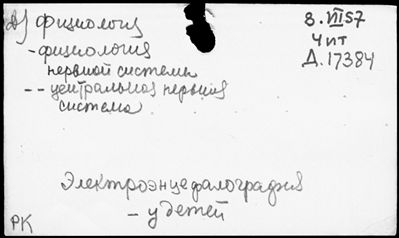 д) физиология
- физиология
нервной системы
-- центральная нервная
система
8.VII57
Чит
Д.17384
Электроэнцефалография
- у детей
РК